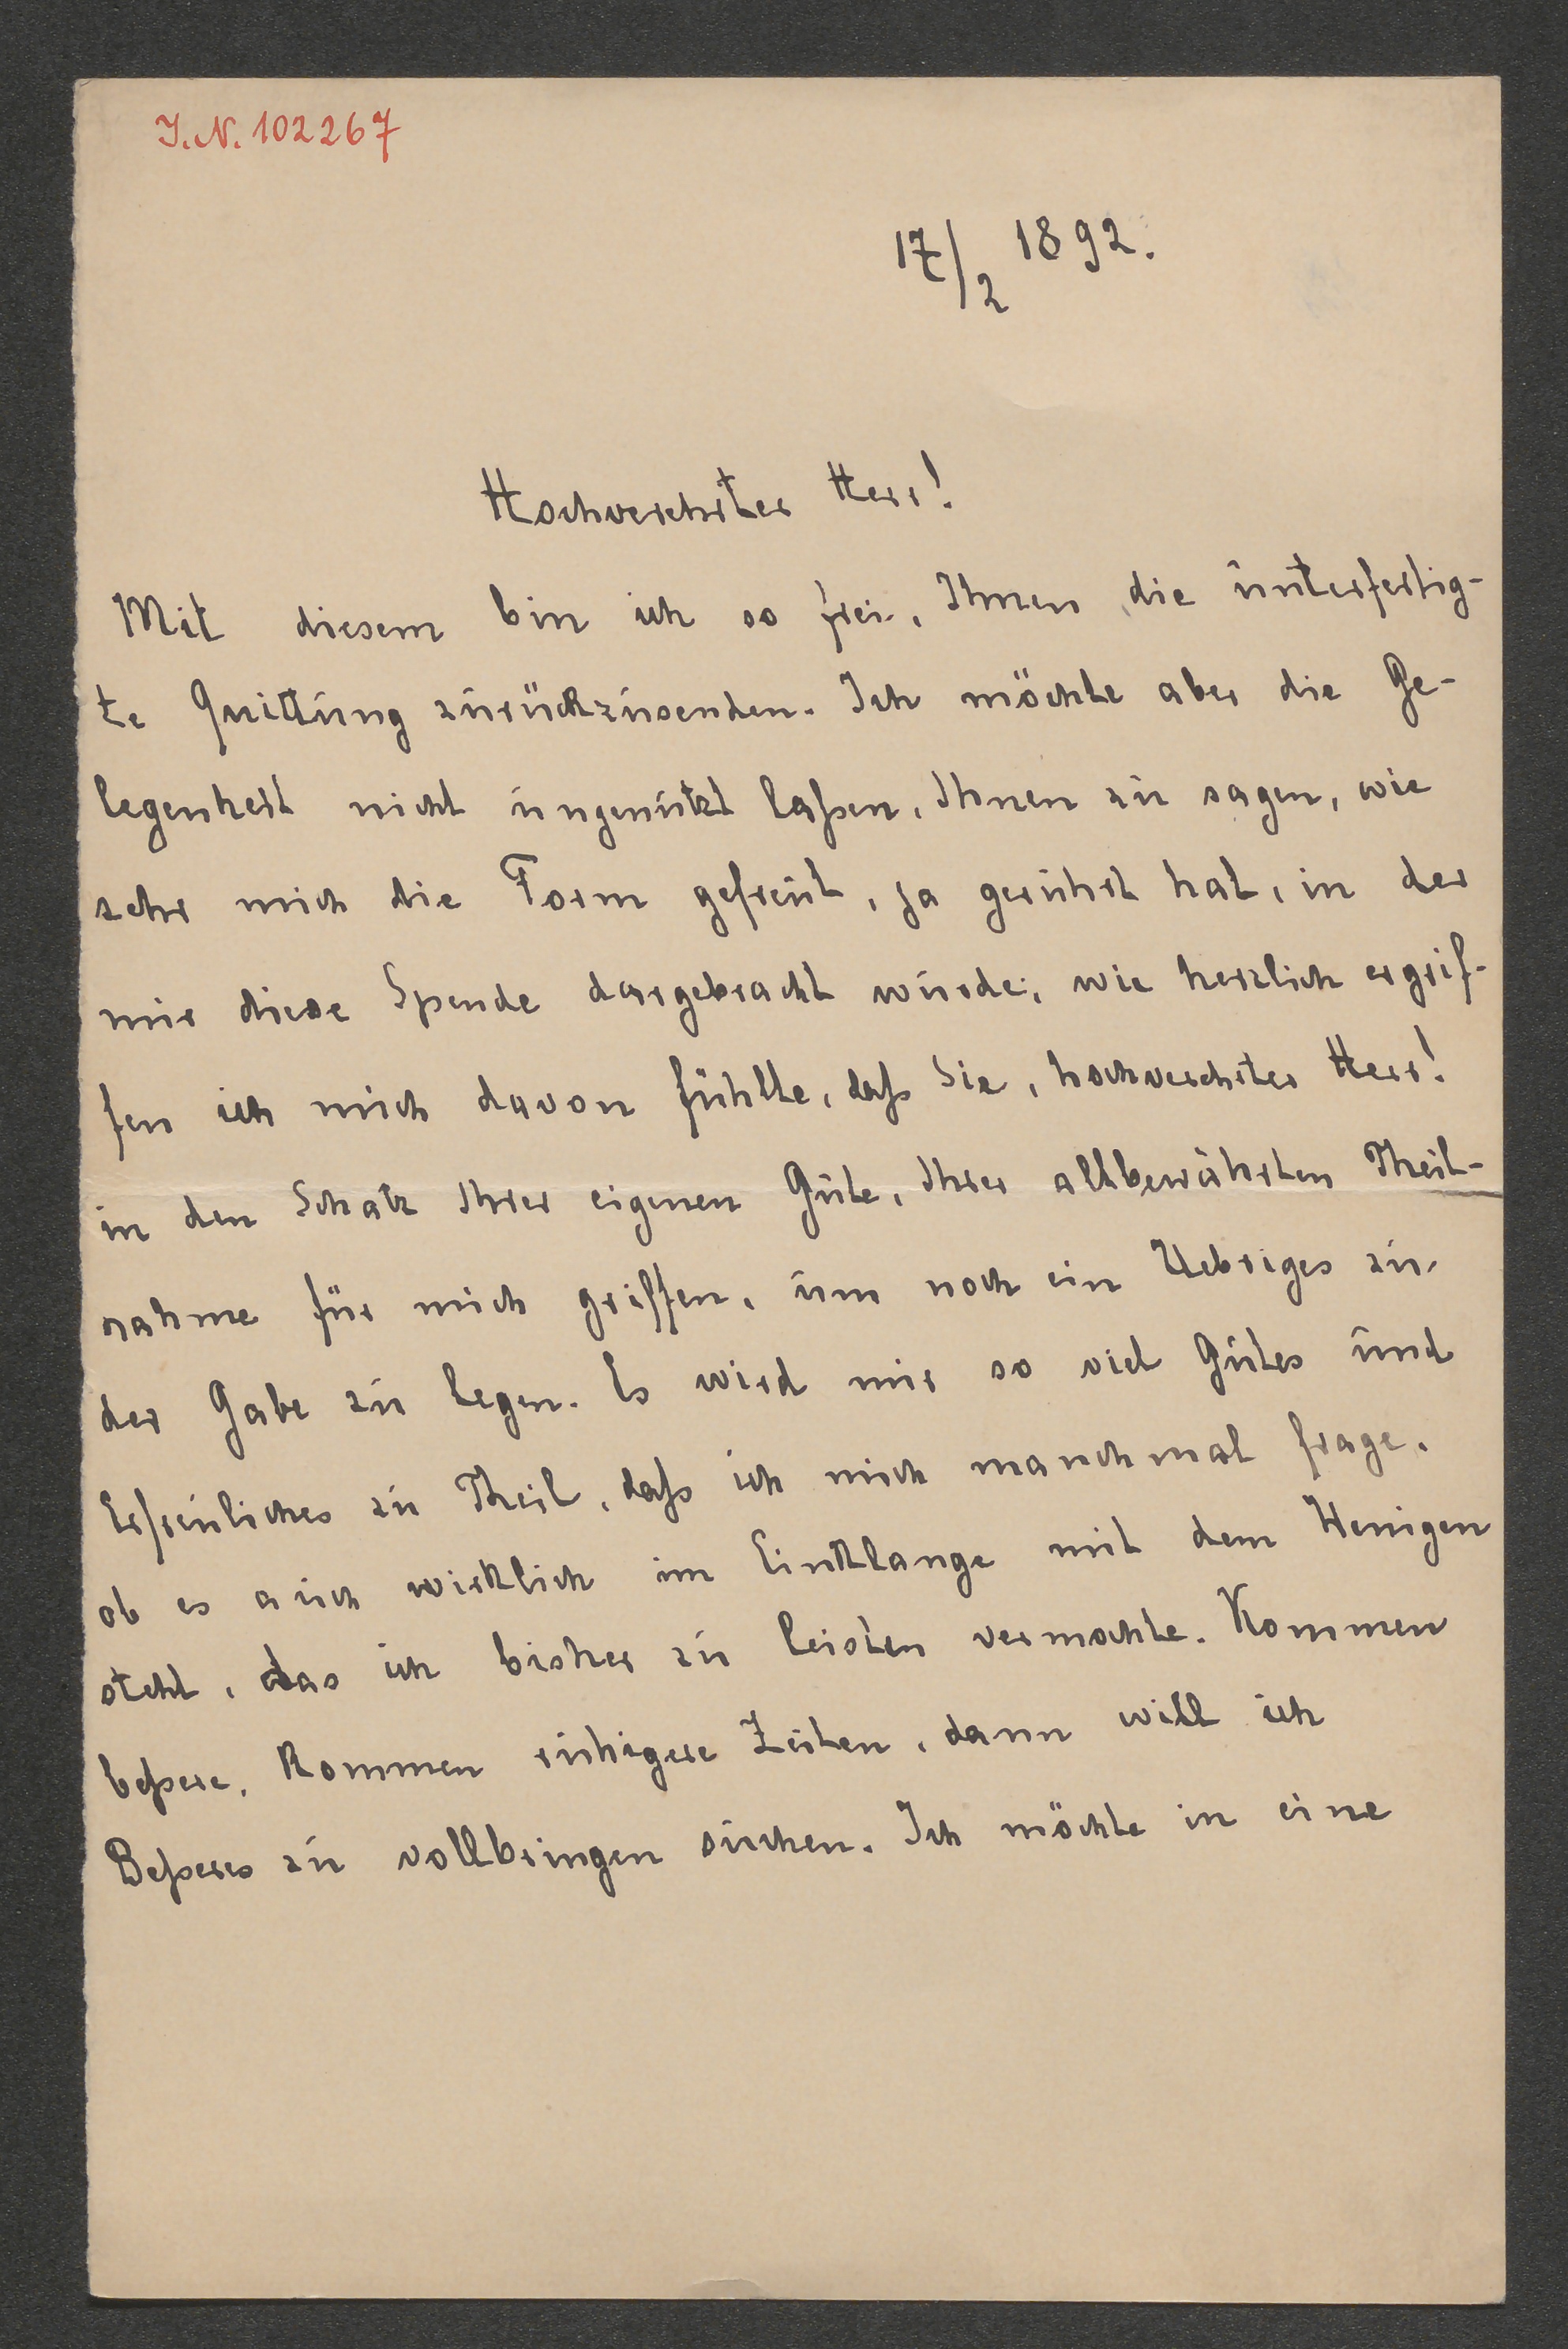 I.N. 102267
17/2 1892.
Hochverehrter Herr!
Mit diesem bin ich so frei, Ihnen die unterfertig-
te Quittung zurückzusenden. Ich möchte aber die Ge-
legenheit nicht ungenützt laßen, Ihnen zu sagen, wie
sehr mich die Form gefreut, ja gerührt hat, in der
mir diese Spende dargebracht wurde; wie herzlich ergrif-
fen ich mich davon fühlte, daß Sie, hochverehrter Herr!
in den Schatz Ihrer eigenen Güte, Ihrer altbewährten Theil-
nahme für mich griffen, um noch ein Uebriges zu
der Gabe zu legen. Es wird mir so viel Gutes und
Erfreuliches zu Theil, daß ich mich manchmal frage,
ob es auch wirklich im Einklange mit dem Wenigen
steht, das ich bisher zu leisten vermochte. Kommen
beßere, kommen ruhigere Zeiten, dann will ich
Beßeres zu vollbringen suchen. Ich möchte in eine